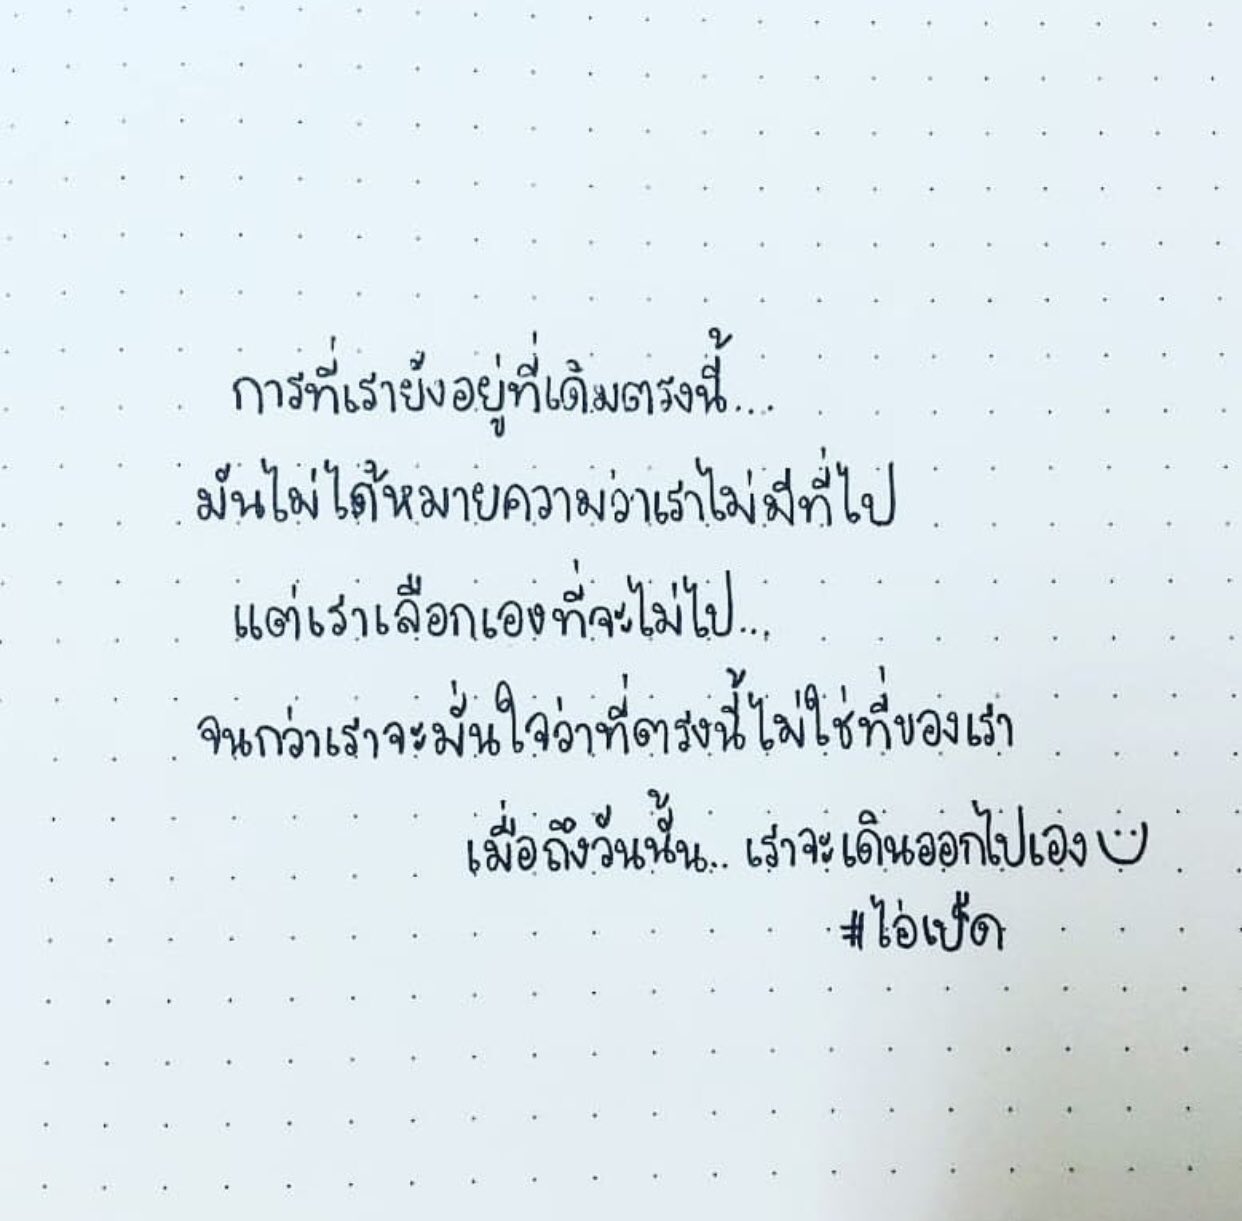 การที่เรายังอยู่ที่เดิมตรงนี้...
มันไม่ได้หมายความว่าเราไม่มีที่ไป
แต่เราเลือกเองที่จะไม่ไป...
จนกว่าเราจะมั่นใจว่าที่ตรงนี้ไม่ใช่ที่ของเรา
เมื่อถึงวันนั้น.. เราจะเดินออกไปเอง
#ไอ่เป็ด